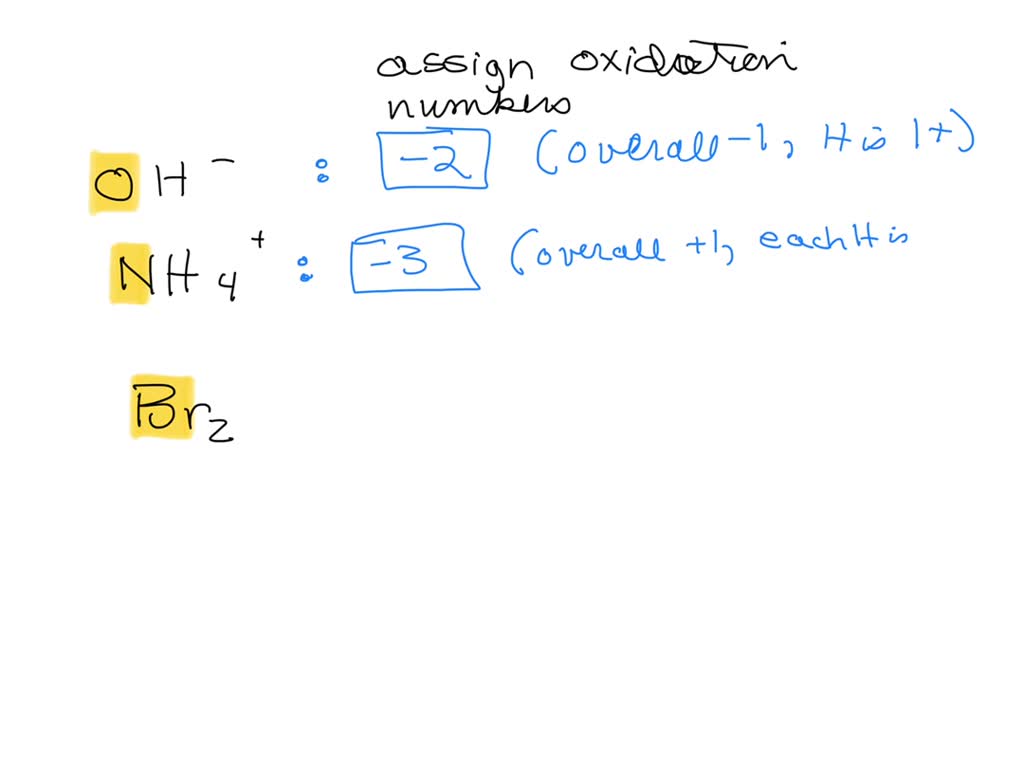 assign oxidation
numbers
OH⁻ : -2 (overall -1, H is 1+)
NH₄⁺ : -3 (overall +1, each H is
Br₂